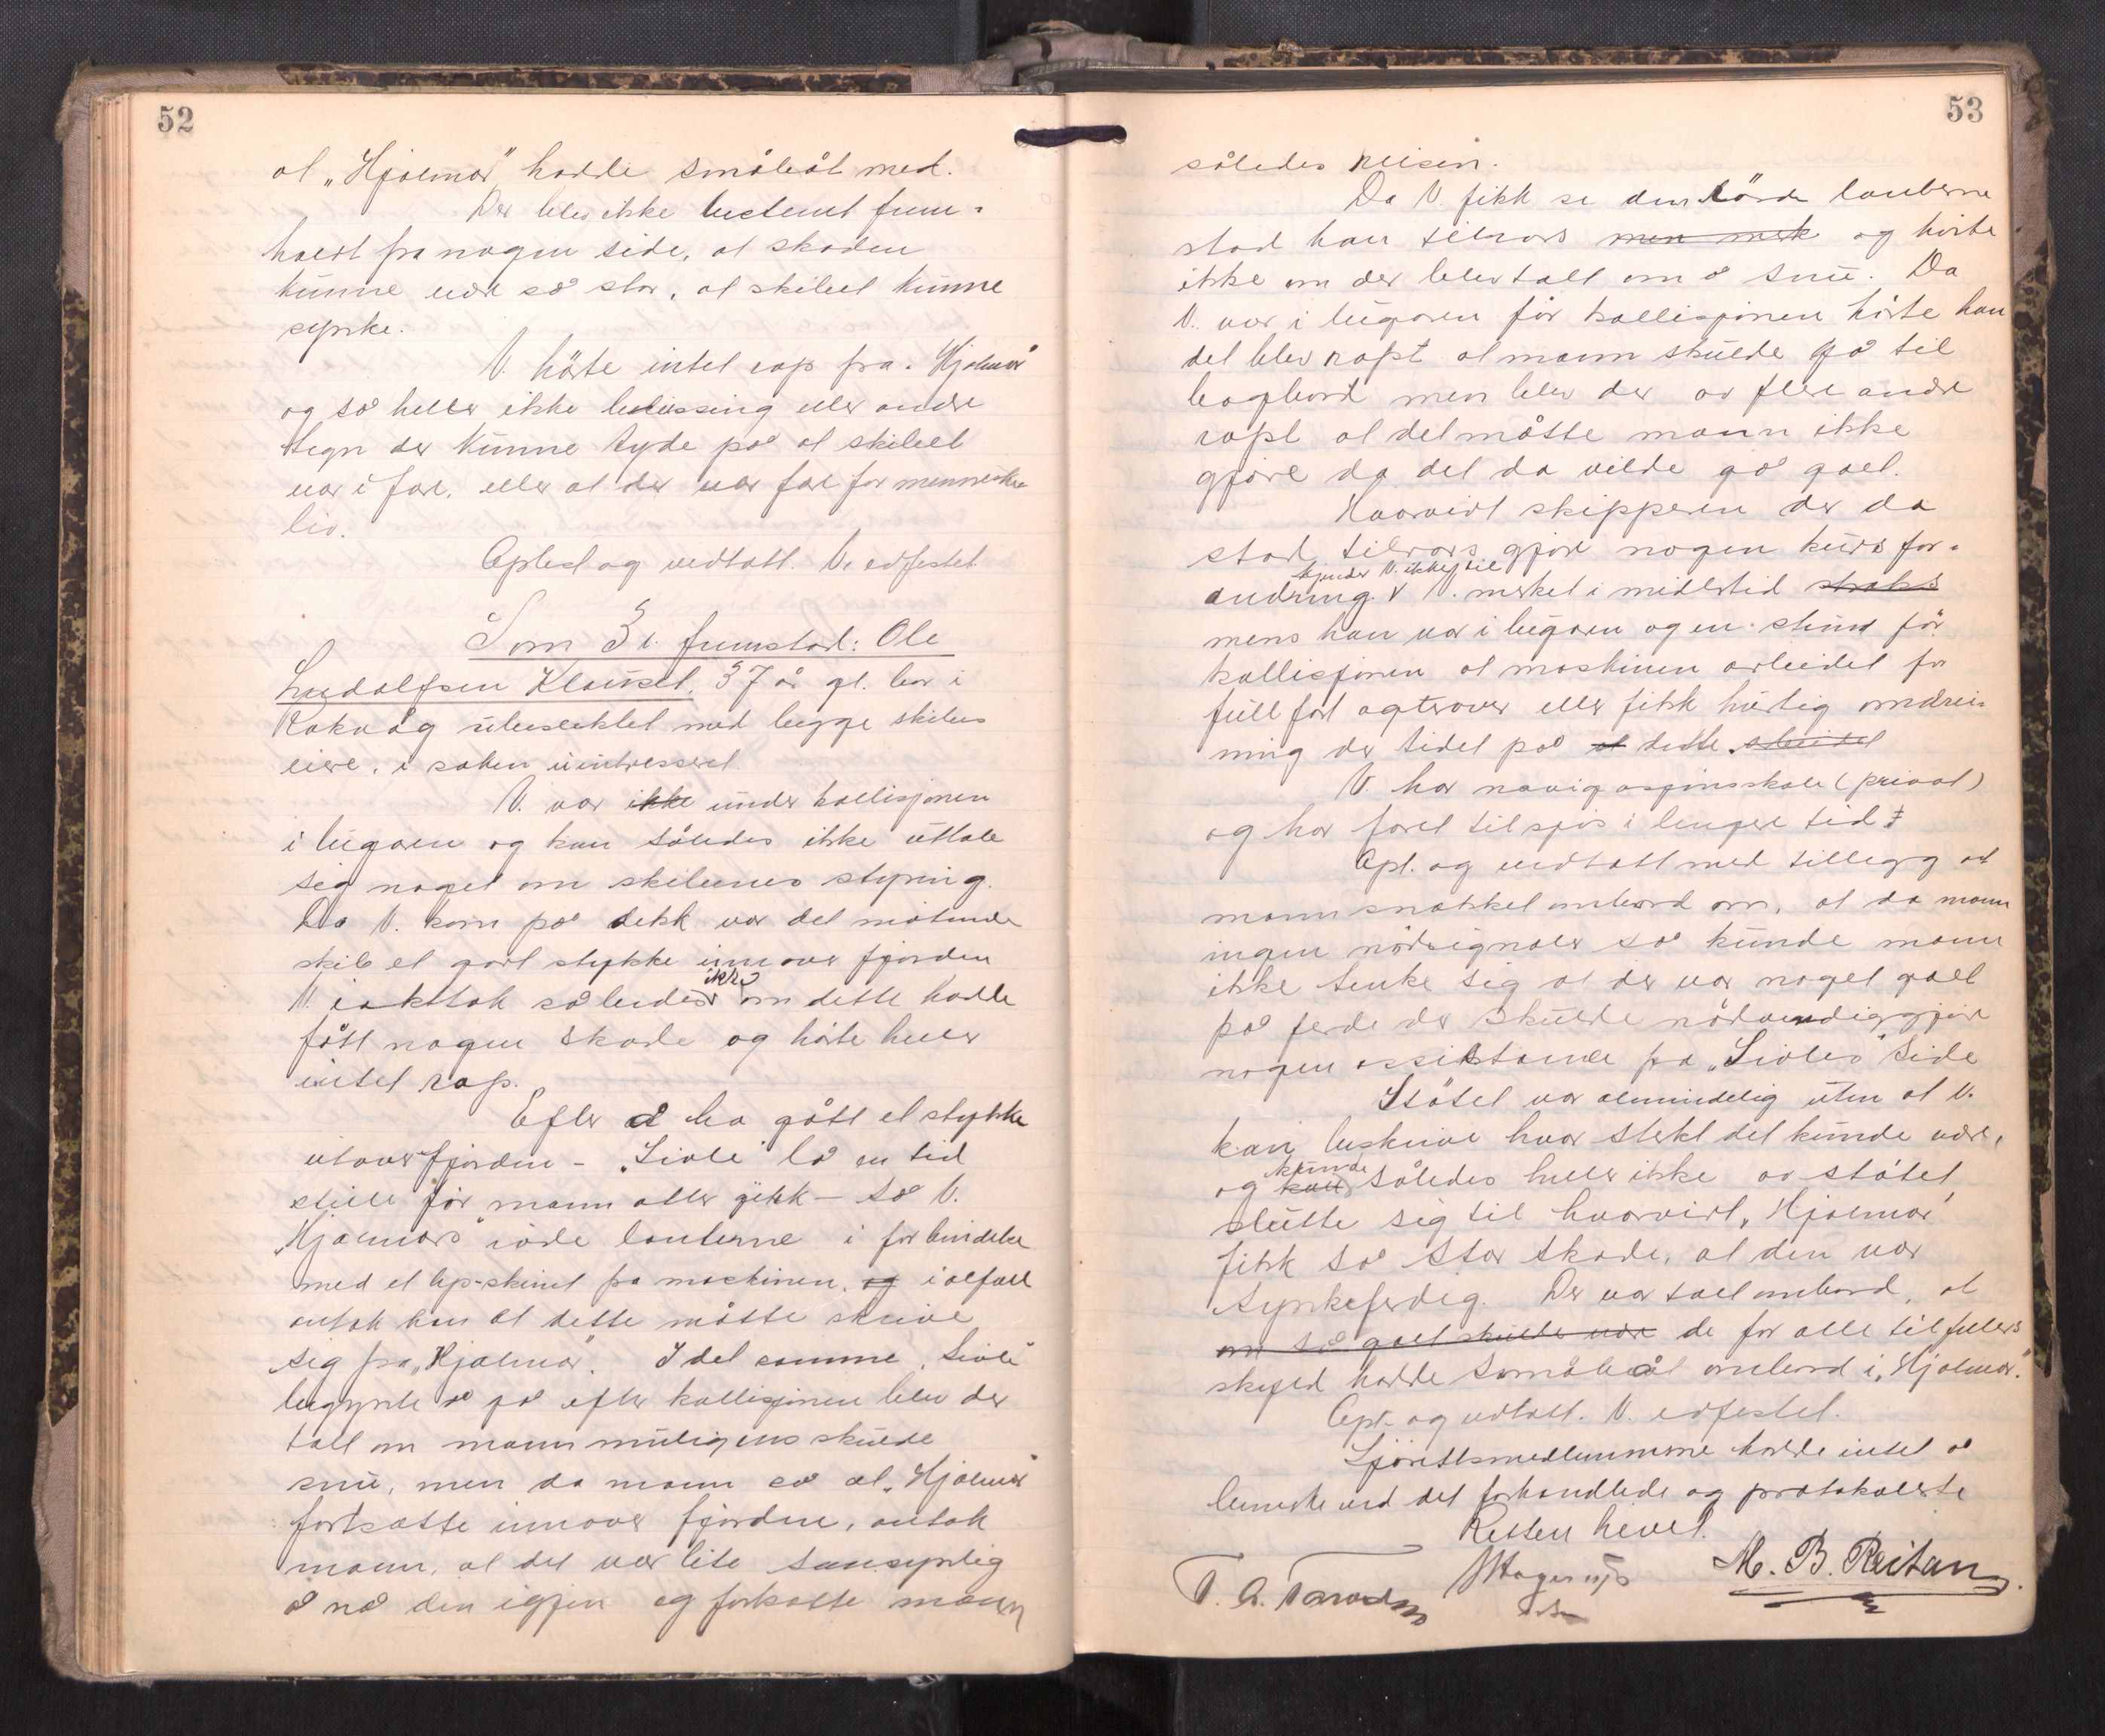 52
at „Hjalmar" hadde småbåt med.
Der blev ikke bestemt frem-
holdt fra nogen side, at skaden
kunne være så stor, at skibet kunne
synke.
V. hörte intet rop fra „Hjalmar"
og så heller ikke belysning eller andre
tegn der kunne tyde på at skibet
var i fare, eller at der var fare for menneske
liv.
Oplest og vedtatt. V. edfestet.
Som 3 v. fremstod: Ole
Ludolfsen Klauset, 37 år gl. bor i
Rakvåg ubeslektet med begge skibes
eiere, i saken uinteressert.
V. var ikke under kollisjonen
i lugaren og kan således ikke uttale
sig noget om skibenes styring.
Da V. kom på dekk var det møtende
skib et godt stykke innover fjorden
V. iakttok således ikke om dette hadde
fått nogen skade og hørte heller
intet rop.
Efter å ha gått et stykke
utover fjorden - „Sivle" lå en tid
stille før mann atter gikk - så V.
„Hjalmars" røde lanterne i forbindelse
med et lysskinet fra maskinen, og i alfall
antok han at dette måtte skrive
sig fra „Hjalmar". I det samme „Sivle"
begynte å gå efter kollisjonen blev der
talt om mann muligens skulde
snu, men da mann så at „Hjalmar"
fortsatte innover fjorden, antok
mann, at det var lite sansynlig
å nå den igjen og fortsatte mann
53
således reisen.
Da V. fikk se den røde lanterne
stod han tilrors men merk og hørte
ikke om der blev talt om å snu. Da
V. var i lugaren før kollisjonen hørte han
det blev ropt at mann skulde gå til
bagbord men blev der av flere andre
ropt at det måtte mann ikke
gjøre da det da vilde gå galt.
Hvorvidt skipperen der da
stod tilrors gjore nogen kurs for-
andring kjender V. ikke til V. merket i midlertid straks
mens han var i lugaren og en stund før
kollisjonen at maskinen arbeidet for
full fart agterover eller fikk hurtig omdrei-
ning der tidet på at dette arbeidet
V. har navigasjonsskole (privat)
og har faret tilsjøs i lengre tid.
Opl. og vedtatt med tillegg at
mann snakket ombord om, at da mann
ingen nødsignaler så kunde mann
ikke tenke sig at der var noget galt
på ferde der skulde nødvendiggjøre
nogen assistance fra „Sivles" side
Støtet var almindelig uten at V.
kan beskrive hvor sterkt det kunde være,
og kan kunde således heller ikke av støtet
slutte sig til hvorvidt „Hjalmar"
fikk så stor skade, at den var
synkeferdig. Der var talt ombord, at
om så galt skulde være de for alle tilfellers
skyld hadde småbåt ombord i „Hjalmar".
Opl. og vedtatt. V. edfestet.
Sjørettsmedlemmerne hadde intet å
bemerke ved det forhandlede og protokolerte
Retten hevet.
M. B. Reitan